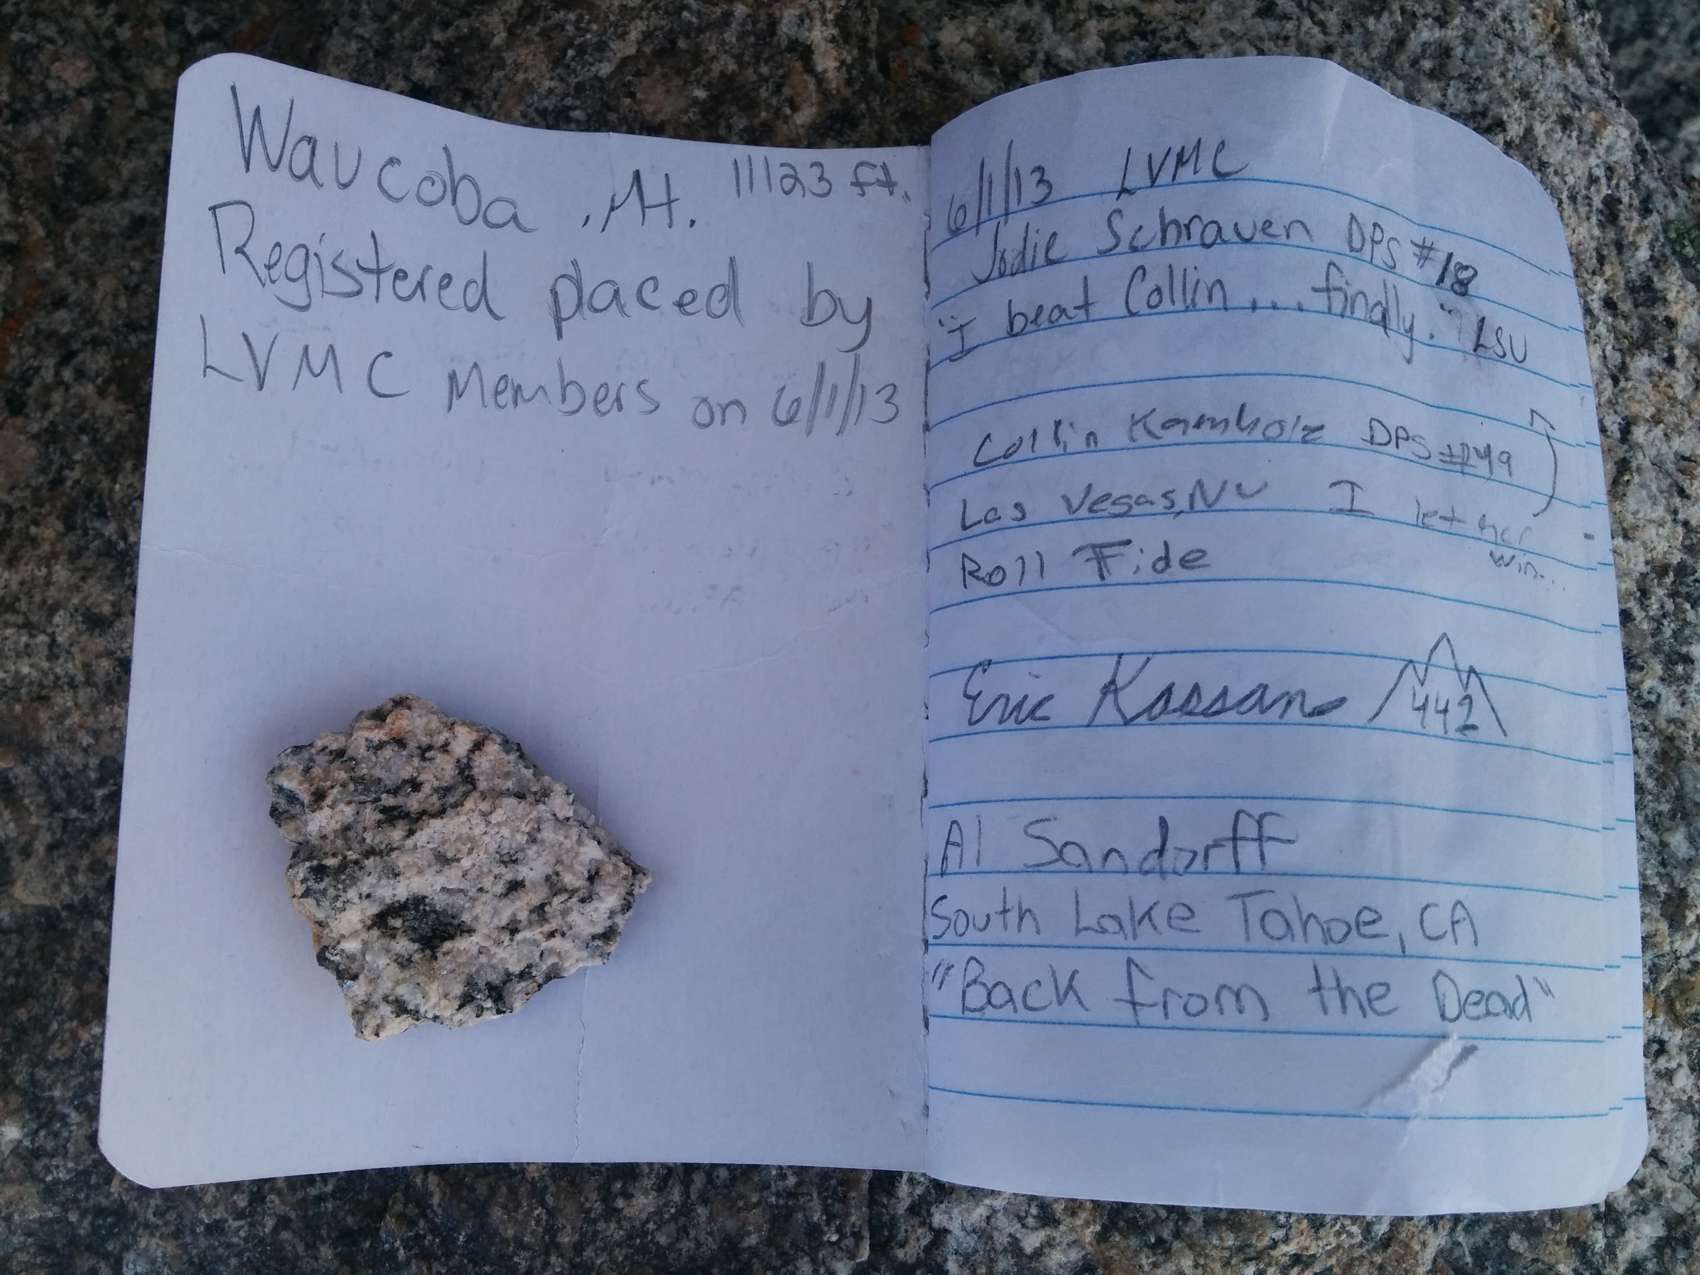 Waucoba Mt. 11123 ft.
Registered placed by
LVMC Members on 6/1/13
6/1/13 LVMC
Jodie Schraven DPS #18
"I beat Collin... finally." LSU
Collin Kamholz DPS #249
Las Vegas, NV I let her
win...
Roll Tide
Eric Kassan 442
Al Sandorff
South Lake Tahoe, CA
"Back from the Dead"